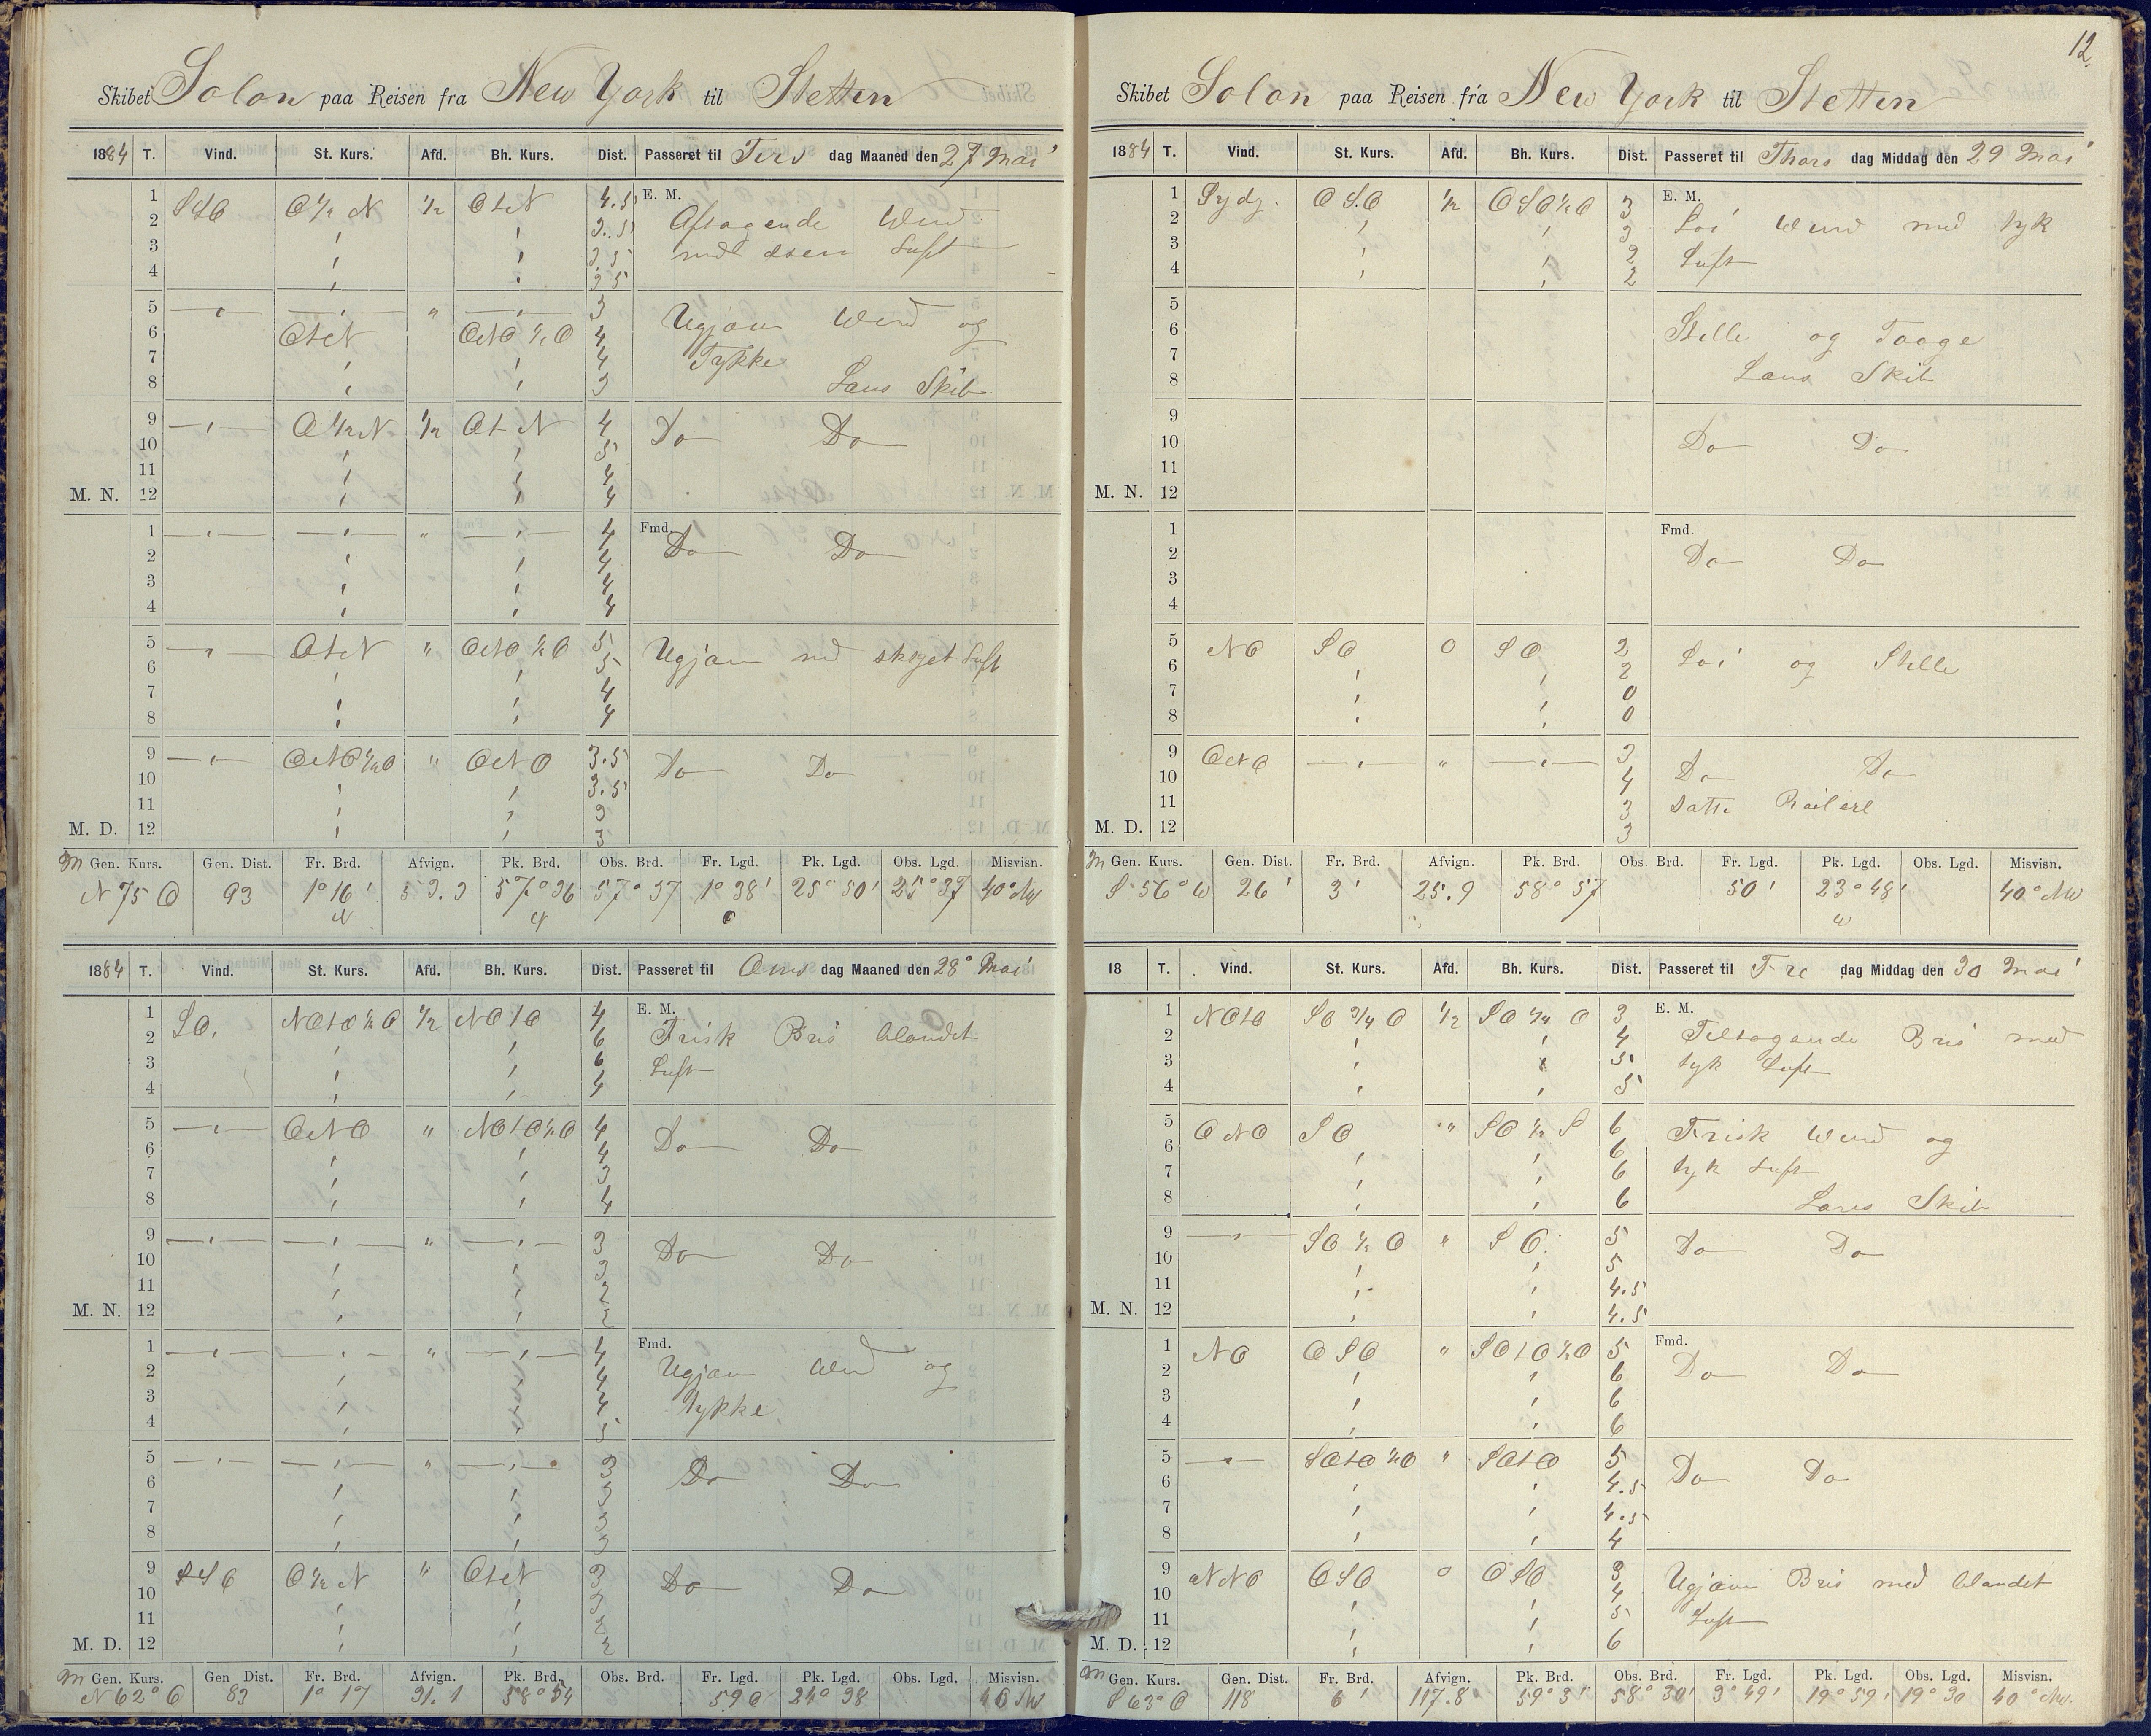 Skibet Solon paa Reisen fra New York til Stettin
1884 T. Vind. St. Kurs. Afd. Bh. Kurs. Dist. Passeret til Tirs dag Maaned den 27 Mai
1 SSO O ½ N ½ OtN 4.5 E. M.
2 " " 3.5 Aftagende Wind
3 " " 3.5 med disen Luft
4 " " 3.5
5 —"— —"— " —"— 3
6 OtN OtNO ½ O 4 Ugjævn Wind og
7 " " 4 Tykke
8 " " 3 Læns Skib
9 —"— O ½ N ½ OtN 4 Do Do
10 " " 5
11 " " 4
M. N. 12 " " 4
1 —"— —"— " —"— 4 Fmd. Do Do
2 " " 4
3 " " 4
4 " " 4
5 —"— OtN " 5 Ugjævn med skyet Luft
6 " " 5
7 " " 4
8 " " 4
9 —"— " OtNO 3.5 Do Do
10 " " 3.5
11 " " 3
M. D. 12 " " 3
m Gen. Kurs. Gen. Dist. Fr. Brd. Afvign. Pk. Brd. Obs. Brd. Fr. Lgd. Pk. Lgd. Obs. Lgd. Misvisn.
N 75 O 93 1° 16' 53.3 57° 36 57° 37 1° 38' 25° 50' 25° 37 40° NW
N N O
1884 T. Vind. St. Kurs. Afd. Bh. Kurs. Dist. Passeret til Ons dag Maaned den 28° Mai
1 SO. NOtO ½ O ½ NOtO 4 E. M.
2 " " 6 Frisk Bris blandet
3 " " 6 Luft
4 " " 4
5 —"— OtNO " NOtO ½ O 4 Do Do
6 " " 4
7 " " 3
8 " " 4
9 —"— —"— " —"— 3 Do Do
10 " " 3
11 " " 2
M. N. 12 " " 2
1 —"— —"— " —"— 4 Fmd.
2 " " 4 Ugjævn Wind og
3 " " 4 tykke
4 " " 5
5 —"— —"— " —"— 3 Do Do
6 " "
7 " "
8 " "
9 SSO O ½ N " OtN 3 Do Do
10 " " 3
11 " " 2
M. D. 12 " " 2
m Gen. Kurs. Gen. Dist. Fr. Brd. Afvign. Pk. Brd. Obs. Brd. Fr. Lgd. Pk. Lgd. Obs. Lgd. Misvisn.
N 62° O 83 1° 17 31.1 58° 54 59 O 24° 38 40 NW
12.
Skibet Solon paa Reisen fra New York til Stettin
1884 T. Vind. St. Kurs. Afd. Bh. Kurs. Dist. Passeret til Thors dag Middag den 29 Mai
1 Sydg. OSO ½ OSO ½ O 3 E. M.
2 " " 3 Löi Wind med tyk
3 " " 2 Luft
4 " " 2
5
6 Stille og Taage
7
8 Læns Skib
9
10 Do Do
11
M. N. 12
1 Fmd.
2 Do Do
3
4
5 NO SO 0 SO 2
6 " " 2 Löi og Stille
7 " " 0
8 " " 0
9 OtNO —"— " —"— 3
10 4 Do Do
11 3 Satte
M. D. 12 3
m Gen. Kurs. Gen. Dist. Fr. Brd. Afvign. Pk. Brd. Obs. Brd. Fr. Lgd. Pk. Lgd. Obs. Lgd. Misvisn.
S 56° W 26' 3' 25.9 58° 57 50' 23° 48' 40° NW
W
18 T. Vind. Vind. St. Kurs. Afd. Bh. Kurs. Dist. Passeret til Fre dag Middag den 30 Mai
1 NOtO SO ¾ O ½ SO ¼ O 3 E. M.
2 " " 4 Tiltagende Bris med
3 " " 5 tyk Luft
4 " " 5
5 ONO SO " SO ½ S 6 Frisk Wind og
6 " " 6
7 " " 6 tyk Luft
8 " " 6 Læns Skib
9 —"— SO ½ O " SO. 5 Do Do
10 " " 5
11 " " 4.5
M. N. 12 " " 4.5
1 NO OSO " SOtO ½ O 5 Fmd.
2 " " 6 Do Do
3 " " 6
4 " " 6
5 —"— SOtO ½ O " SOtO 5 Do Do
6 " " 4.5
7 " " 4.5
8 " " 4
9 NNO OSO 0 OSO 3 Ugjævn Bris med blandet
10 " " 4
11 " " 5 Luft
M. D. 12 " " 6
m Gen. Kurs. Gen. Dist. Fr. Brd. Afvign. Pk. Brd. Obs. Brd. Fr. Lgd. Pk. Lgd. Obs. Lgd. Misvisn.
S 63° O 118 6' 117.8 59° 3' 58° 30' 3° 49' 19° 59' 19° 30 40° NW.